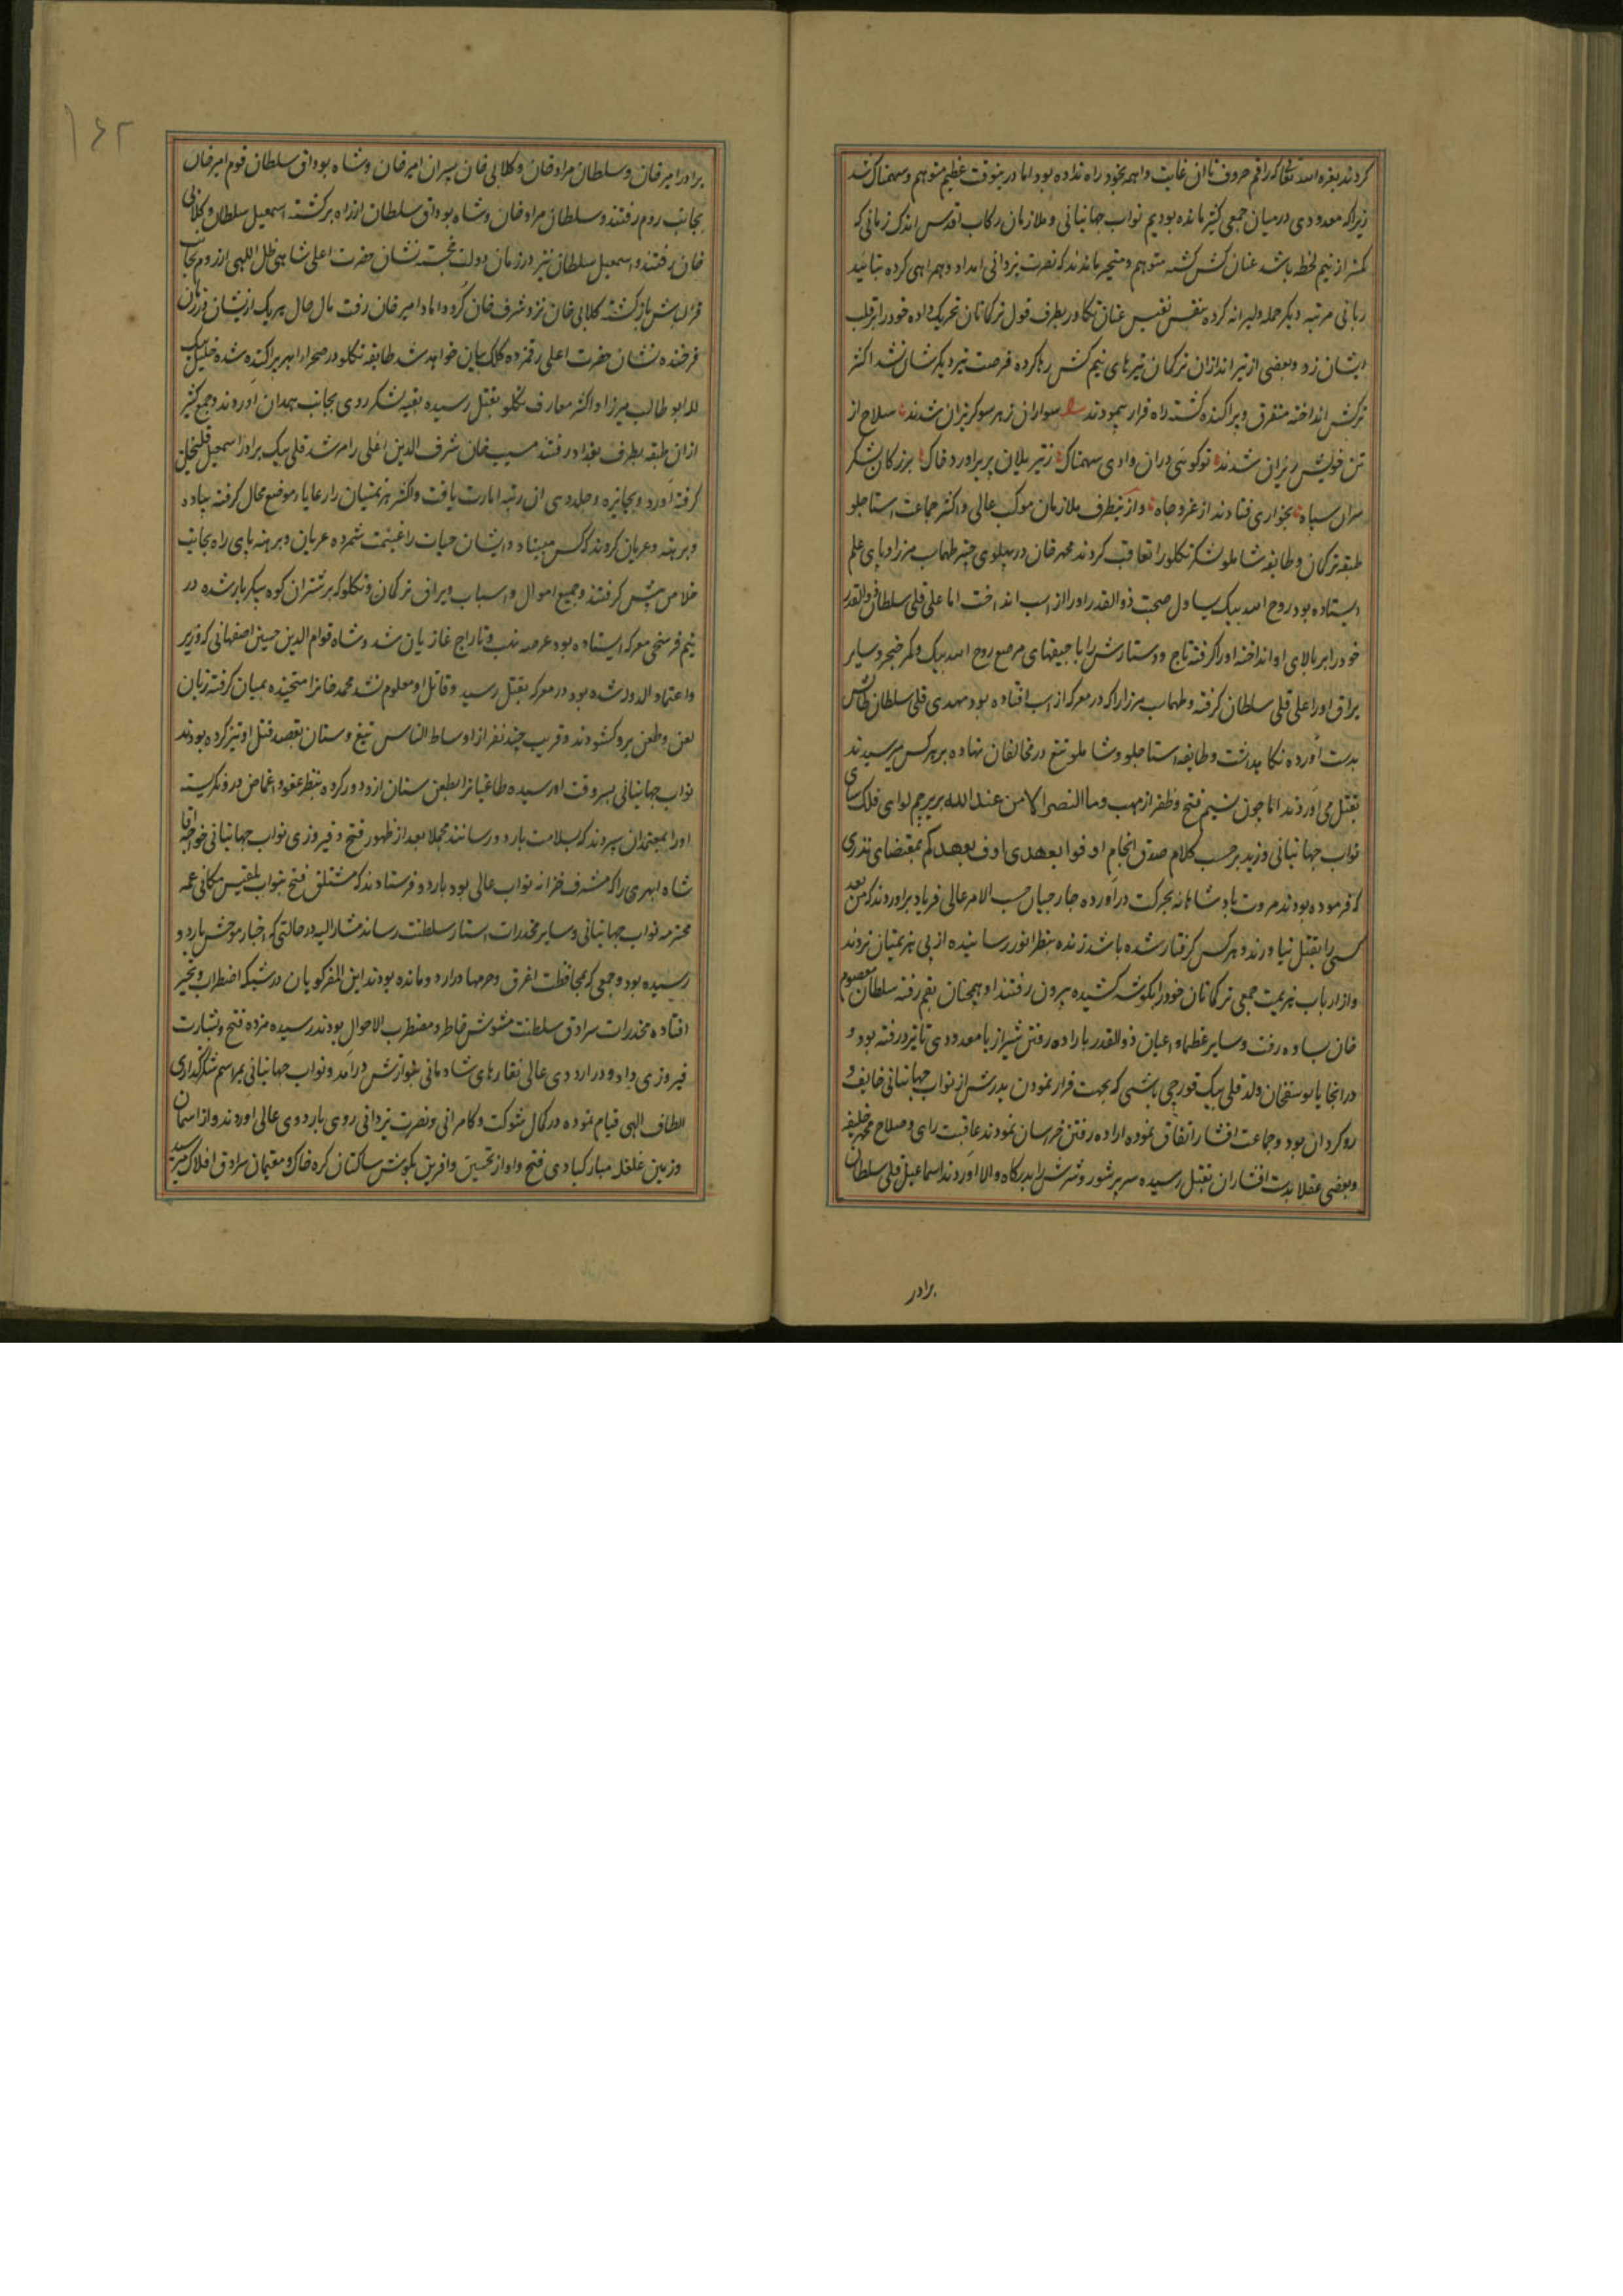 کردند بغره الله تعالی که راقم حروف تا ان غایت واهمه بخود راه نداده بود اما درینوقت عظیم متوهم و سهمناک شد
زیرا که معدودی در میان جمعی کثیر مانده بودیم نواب جهانبانی و ملازمان رکاب اقدس اندک زمانی که
کمتر از نیم لحظه باشد عنان کش کشته متوهم و متحیر ماندند که نصرت یزدانی امداد و همراهی کرده بتائید
ربانی مرتبه دیگر حمله دلیرانه کرده بنفس نفیس عنان تکاور بطرف قول ترکمانان تحریک داده خود را بر قلب
ایشان زد و بعضی از تیراندازان ترکمان تیرهای نیم کش رها کرده فرصت تیر دیگرشان نشد اکثر
ترکش انداخته متفرق و پراکنده کشته راه فرار پیمودند سواران ز هر سو کریزان شدند سلاح از
تن خویش ریزان شدند تو کوئی دران وادی سهمناک ز تیر یلان پر براورد خاک بزرکان لشکر
سران سپاه بخواری فتادند از عز و جاه و از ینطرف ملازمان موکب عالی و اکثر جماعت استاجلو
طبقه ترکمان و طایفه شاملو لشکر تکلو را تعاقب کردند محمد خان در پهلوی چتر طهماسب میرزا در پای علم
ایستاده بود روح الله بیک یساول صحبت ذوالقدر او را از اسب انداخت اما علی قلی سلطان ذوالقدر
خود را بر بالای او انداخته او را کرفته تاج و دستارش را با جیقهای مرصع روح الله بیک و کمر خنجر و سایر
یراق او را علی قلی سلطان کرفته و طهماسب میرزا را که در معرکه از اسب افتاده بود مهدی قلی سلطان طالش
بدست آورده نکاه داشت و طایفه استاجلو و شاملو تیغ در مخالفان نهاده بر هر کس میرسیدند
بقتل می اوردند اما چون نسیم فتح و ظفر از مهب و ما النصر الا من عند الله بر پرچم لوای فلک سای
نواب جهانبانی وزید بر حسب کلام صدق انجام اوفوا بعهدی اوف بعهدکم بمقتضای نذری
که فرموده بودند مروت پادشاهانه بحرکت درآورده جارجیان حسب الامر عالی فریاد براوردند که من بعد
کسی را بقتل نیاورند و هر کس کرفتار شده باشد زنده بنظر انور رسانیده از پی هزیمتیان نروند
و از ارباب هزیمت جمعی ترکمانان خود را بکوشه کشیده بیرون رفتند او همچنان بقم رفته سلطان معصوم
خان بساوه رفت و سایر عظما و اعیان ذوالقدر باراده رفتن شیراز با معدودی تا نیز در رفته بود و
در انجا با یوسفخان ولد قلی بیک قورچی باشی که بجهت فرار نمودن پدرش از نواب جهانبانی خایف و
روکردان بود و جماعت افشار اتفاق نموده اراده رفتن خراسان نمودند عاقبت رای و صلاح محمد خلیفه
و بعضی عقلا بدست افشاران بقتل رسیده سر پر شور و شرش را بدرکاه والا اوردند اسماعیل قلی سلطان
برادر
۱۶۲
برادر امیر خان و سلطان مراد خان و کلابی خان پسران امیر خان و شاه بوداق سلطان قوم امیر خان
بجانب روم رفتند و سلطان مراد خان و شاه بوداق سلطان از راه برکشته اسمعیل سلطان و کلابی
خان رفتند و اسمعیل سلطان نیز در زمان دولت خجسته نشان حضرت اعلی شاهی ظل اللهی از روم بجانب
قزلباش بازکشته کلابی خان نزد شرف خان کرد داماد امیر خان رفت مال حال هر یک از یشان در زمان
فرخنده نشان حضرت اعلی رقمزده کلک بیان خواهد شد طایفه تکلو در صحرا ابهر پراکنده شده خلیل بیک
لله ابو طالب میرزا و اکثر معارف تکلو بقتل رسیده بقیه لشکر روی بجانب همدان اوردند و جمع کثیر
ازان طبقه بطرف بغداد رفتند مسیب خان شرف الدین اغلی را مرشد قلی بیک برادر اسمعیل قلیخان
کرفته آورد و بجایزه و جلدوی ان رتبه امارت یافت و اکثر هزیمتیان را رعایا و موضع محال کرفته پیاده
و برهنه و عریان کردند که کس مبیناد و ایشان حیات را غنیمت شمرده عریان و برهنه پای راه بجانب
خلاص پیش کرفتند و جمیع اموال و اسباب و یراق ترکمان و تکلو که بر شتران کوه پیکر بار شده در
نیم فرسخی معرکه ایستاده بود عرصه نهب و تاراج غازیان شد و شاه قوام الدین حسین اصفهانی که وزیر
و اعتماد الدوله شده بود در معرکه بقتل رسید و قاتل او معلوم نشد محمد خانرا بمیان کرفته زبان
لعن و طعن برو کشودند و قریب چند نفر از اوساط الناس تیغ و سنان بقصد قتل او تیز کرده بودند
نواب جهانبانی بسر وقت او رسیده طاغیانرا بطعن سنان ازو دور کرده بنظر عفو و اغماض درو نکریسته
او را بمعتمدان سپردند که بسلامت باردو رسانند مجملا بعد از ظهور فتح و فیروزی نواب جهانبانی خواجه اقا
شاه ابهری را که مشرف خزانه نواب عالی بود باردو فرستادند که مشتلق فتح بنواب بلقیس مکانی عمه
محترمه نواب جهانبانی و سایر مخدرات استار سلطنت رساند مشار الیه در حالتی که اخبار موحش باردو
رسیده بود و جمعی که بمحافظت اغرق و حرمها در اردو مانده بودند این المفر کویان در شبکه اضطراب و تحیر
افتاده مخدرات سرادق سلطنت مشوش خاطر و مضطرب الاحوال بودند رسیده مژده فتح و بشارت
فیروزی داد و در اردوی عالی نقارهای شادمانی بنوازش درآمد و نواب جهانبانی بمراسم شکرکذاری
الطاف الهی قیام نموده در کمال شوکت و کامرانی و نصرت یزدانی روی باردوی عالی اوردند و از اسمان
و زمین غلغله مبارکبادی فتح و اواز تحسین و افرین بکوش ساکنان کره خاک و مقیمان سرادق افلاک میرسید